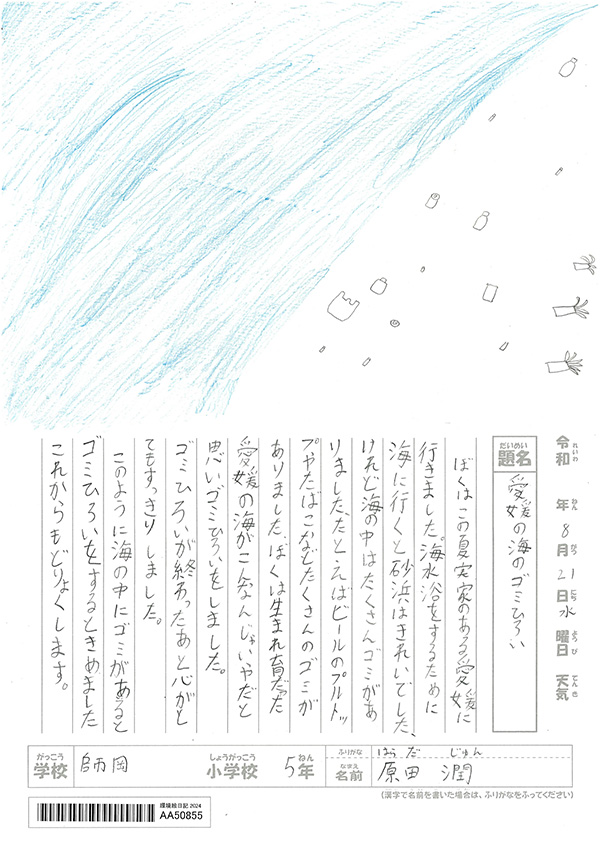 令和 年 8月 21日 水曜日 天気
れいわ ねん がつ にち ようび てんき
だいめい
題名 愛媛の海のゴミひろい
ぼくはこの夏実家のある愛媛に
行きました。海水浴をするために
海に行くと砂浜はきれいでした、
けれど海の中はたくさんゴミがあ
りました、たとえばビールのプルトッ
プやたばこなどたくさんのゴミが
ありました、ぼくは生まれ育だった
愛媛の海がこんなんじゃいやだと
思い、ゴミひろいをしました。
ゴミひろいが終わったあと心がと
てもすっきりしました。
このように海の中にゴミがあると
ゴミひろいをするときめました
これからもどりょくします。
がっこう しょうがっこう ねん
学校 師岡 小学校 5年
ふりがな はらだ じゅん
なまえ
名前 原田 潤
(漢字で名前を書いた場合は、ふりがなをふってください)
環境絵日記 2024
AA50855